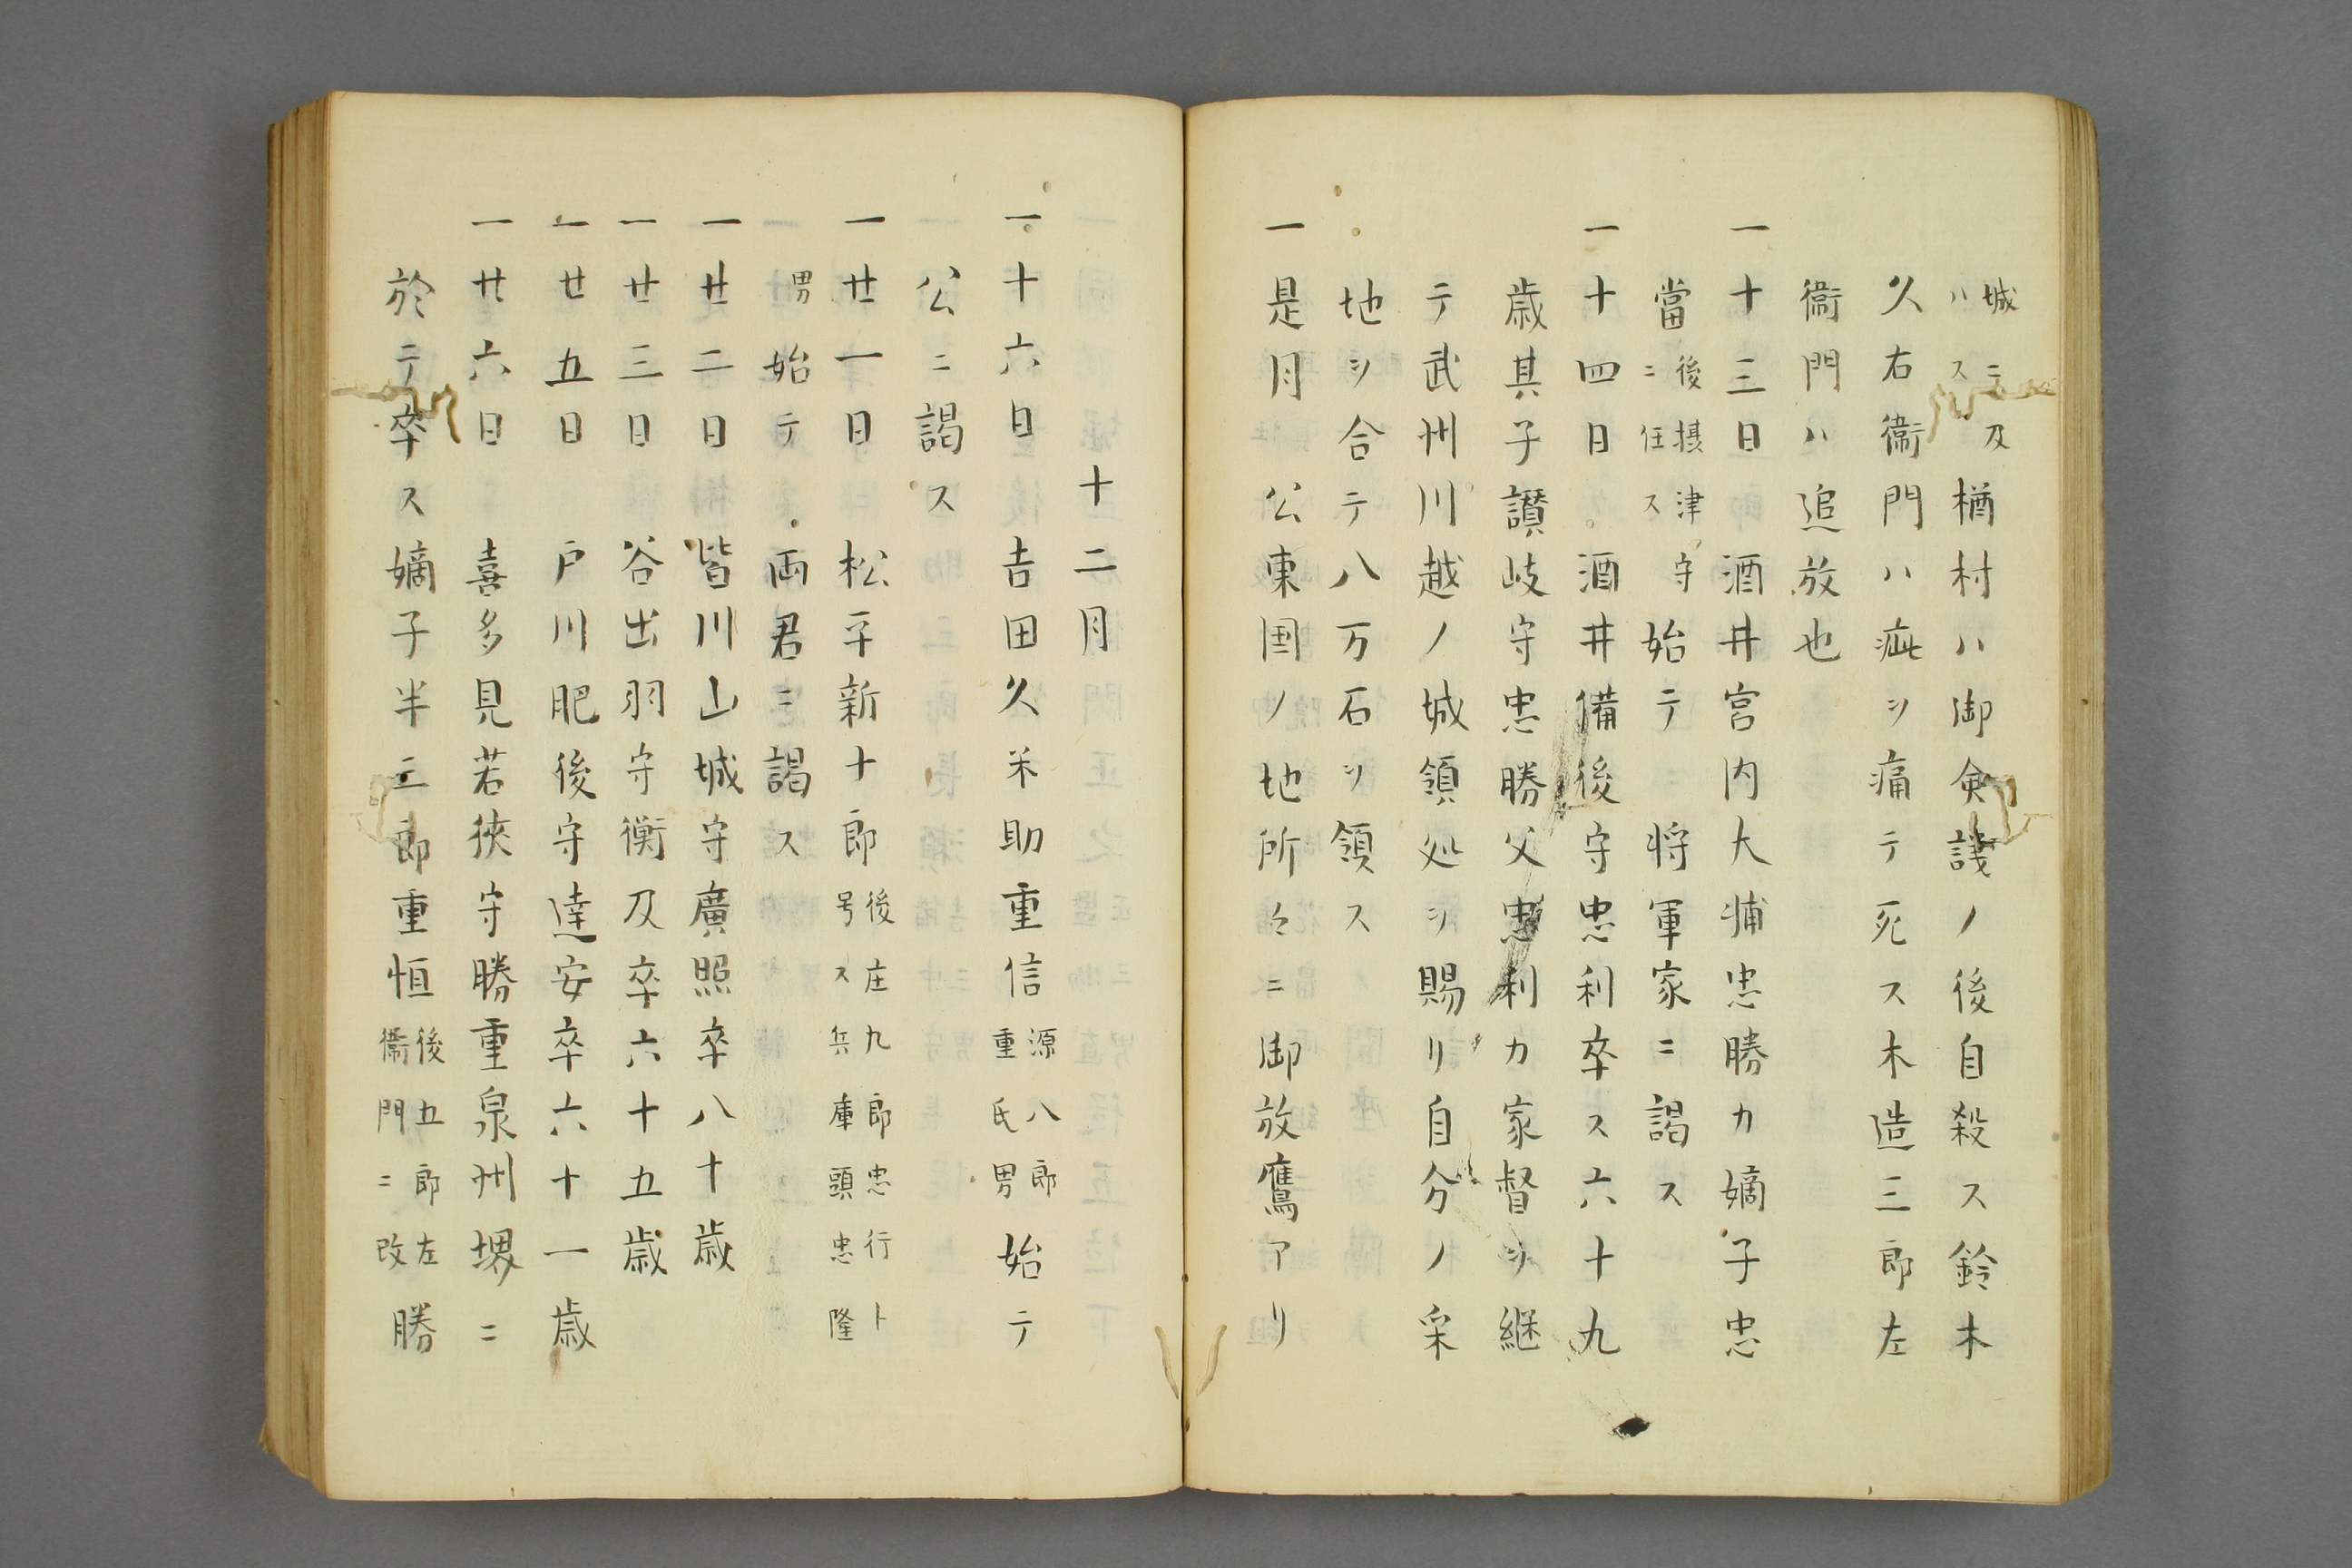 城ニ及ハス楢村ハ御僉議ノ後自殺ス鈴木
久右衞門ハ疵ヲ痛テ死ス木造三郎左
衞門ハ追放也
一十三日酒井宮内大輔忠勝カ嫡子忠
當後摂津守ニ任ス始テ　将軍家ニ謁ス
一十四日　酒井備後守忠利卒ス六十九
歳其子讃岐守忠勝父忠利カ家督ヲ継
テ武州川越ノ城領処ヲ賜リ自分ノ采
地ヲ合テ八万石ヲ領ス
一是月　公東国ノ地所々ニ御放鷹アリ
十二月
一十六日　吉田久米助重信源八郎重氏男始テ
公ニ謁ス
一廿一日　松平新十郎後庄九郎忠行ト号ス兵庫頭忠隆
男始テ　両君ニ謁ス
一廿二日　皆川山城守廣照卒八十歳
一廿三日　谷出羽守衡及卒六十五歳
一廿五日　戸川肥後守達安卒六十一歳
一廿六日　喜多見若狭守勝重泉州堺ニ
於テ卒ス嫡子半三郎重恒後五郎左衞門ニ改勝